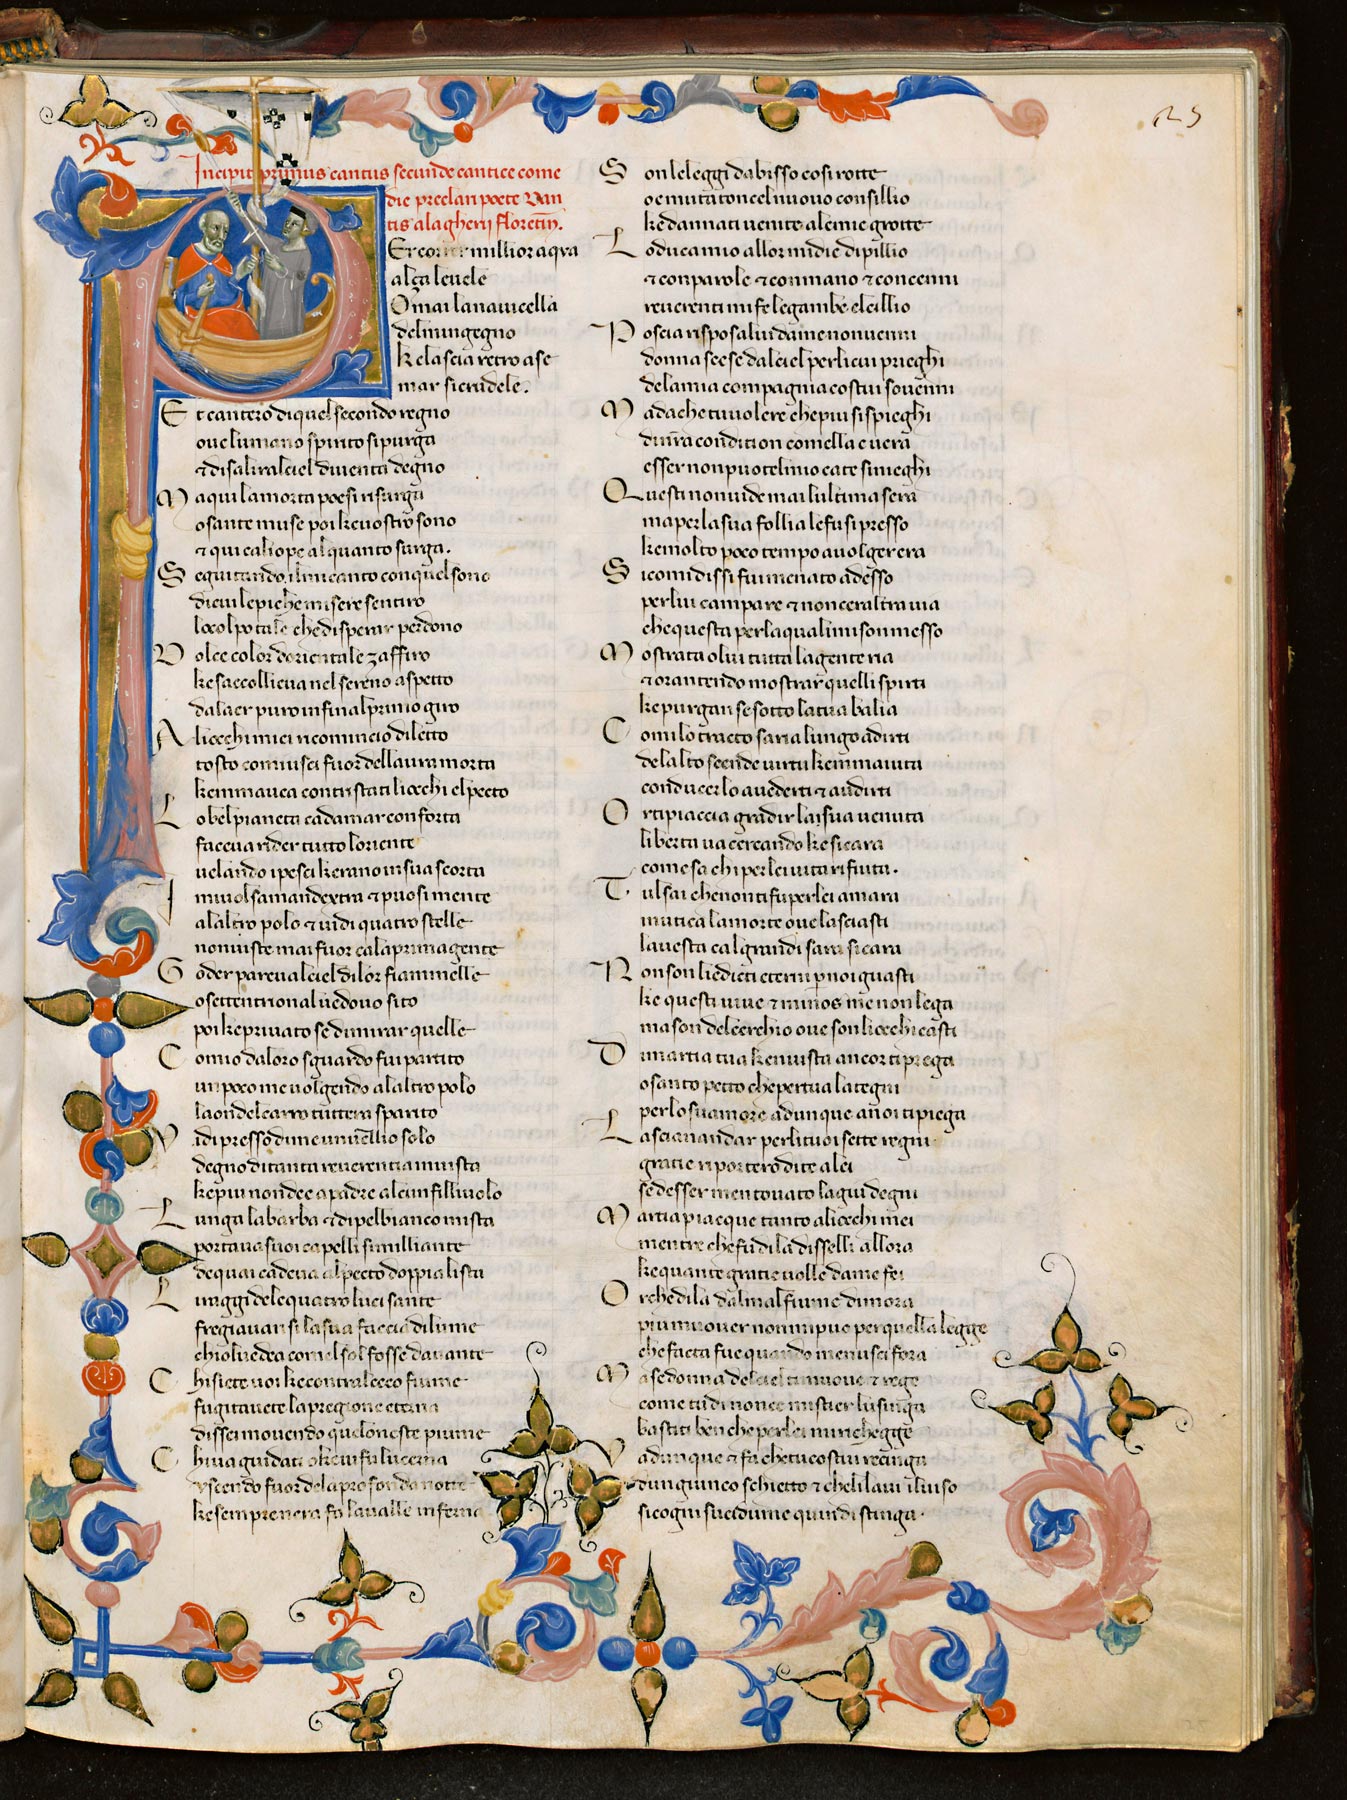 25
Incipit primus cantus secunde cantice come
die preclari poete Dan
tis alagherij florētin.
Er correr millior aqua
alça leuele
Omai lanauicella
delmiingegno
ke lascia retro ase
mar sicrudele.
Et cantero diquel secondo regno
oue lumano spirito sipurga
⁊ disaliralciel diuenta degno
Ma qui lamorta poesi risurga
o sante muse poi ke uostro sono
⁊ qui caliope alquanto surga.
Seguitando ilmicanto conquel sono
dicui lepiche misere sentiro
locolpo tale che disperar perdono
Dolce color dorientale zaffiro
ke saccoglieua nel sereno aspetto
dalaer puro infinalprimo giro
Aliocchi miei ricomincio diletto
tosto comiusci fuor dellaura morta
kemmauea contristati liocchi elpecto
Lo bel pianeta cadamar conforta
faceua rider tutto loriente
uelando ipesci kerano insua scorta
Imuolsi amandextra ⁊ puosi mente
alaltro polo ⁊ uidi quatro stelle
nonuiste mai fuor calaprima gente
Goder pareualciel dilor fiammelle
o settentrional uedouo sito
poi ke priuato se dimirar quelle
Comio daloro sguardo fui partito
un poco me uolgendo alaltro polo
laonde lcarro tuttera sparito
Vidi presso dime unuellio solo
degno ditanta reuerentia inuista
ke piu non dee apadre alcun filliuolo
Lunga labarba ⁊ dipelbianco mista
portaua suoi capelli simillianti
dequai cadeua alpecto doppia lista
Li raggi dele quatro luci sante
fregiauan si lasua faccia dilume
chioluedea comel sol fosse dauante
Chi siete uoi ke contralcieco fiume
fugitauete lapregione eterna
dissel mouendo quelloneste piume
Chiua guidati o ke uifu lucerna
vscendo fuor dela profonda notte
ke sempre nera fa laualle inferna
Son leleggi dabisso cosi rotte
o e mutato nciel nuouo consillio
ke dannati uenite alemie grotte
Lo duca mio allor midie dipillio
⁊ con parole ⁊ con mano ⁊ con cenni
reuerenti mi fe legambe elcillio
Poscia rispose alui dame nonuenni
donna scese dalciel per licui prieghi
dela mia compagnia costui souenni
Ma da che tuuolere che piu si spieghi
dinr̄a condition comella e uera
esser non puote lmio cate si nieghi
Questi nonuide mai lultima sera
ma perla sua follia le fu si presso
ke molto poco tempo auolger era
Si comi dissi fui menato adesso
per lui campare ⁊ noncera altra uia
che questa perlaqualimi son messo
Mostrata o lui tutta lagente ria
⁊ ora ntendo mostrar quelli spirti
ke purgan se sotto latua balia
Comi lo tracto saria lungo adirti
delalto scende uirtu kemmaiuta
conducerlo auederti ⁊ audirti
Or ti piaccia gradir lasua uenuta
liberta ua cercando ke si cara
come sa chi per lei uita rifiuta.
Tu lsai che non tifu per lei amara
inutica lamorte oue lasciasti
lauesta calgrandi sara si cara
Non son liedicti eterni p noi guasti
ke questi uiue ⁊ minos me non lega
ma son delcerchio oue son liocchi casti
Dimartia tua ke nuista ancor tiprega
o santo petto che pertua lategni
per lo suamore adunque anoi tipiega
Lasciane andar per lituoi sette regni
gratie riportero dite alei
se desser mentouato lagiu degni
Martia piacque tanto aliocchi mei
mentre che fu dila disselli allora
ke quante gratie uolle dame fei
Or che dila dalmal fiume dimora
piu muouer nonmi puo per quella legge
che facta fue quando menusci fora
Ma se donna delciel timuoue ⁊ rege
come tudi nonce mistier lusinga
bastiti ben che per lei mirichegge
Vadunque ⁊ fa chetu costui recinga
dun giunco schietto ⁊ cheli laui iluiso
sicogni sucidume quindi stinga.